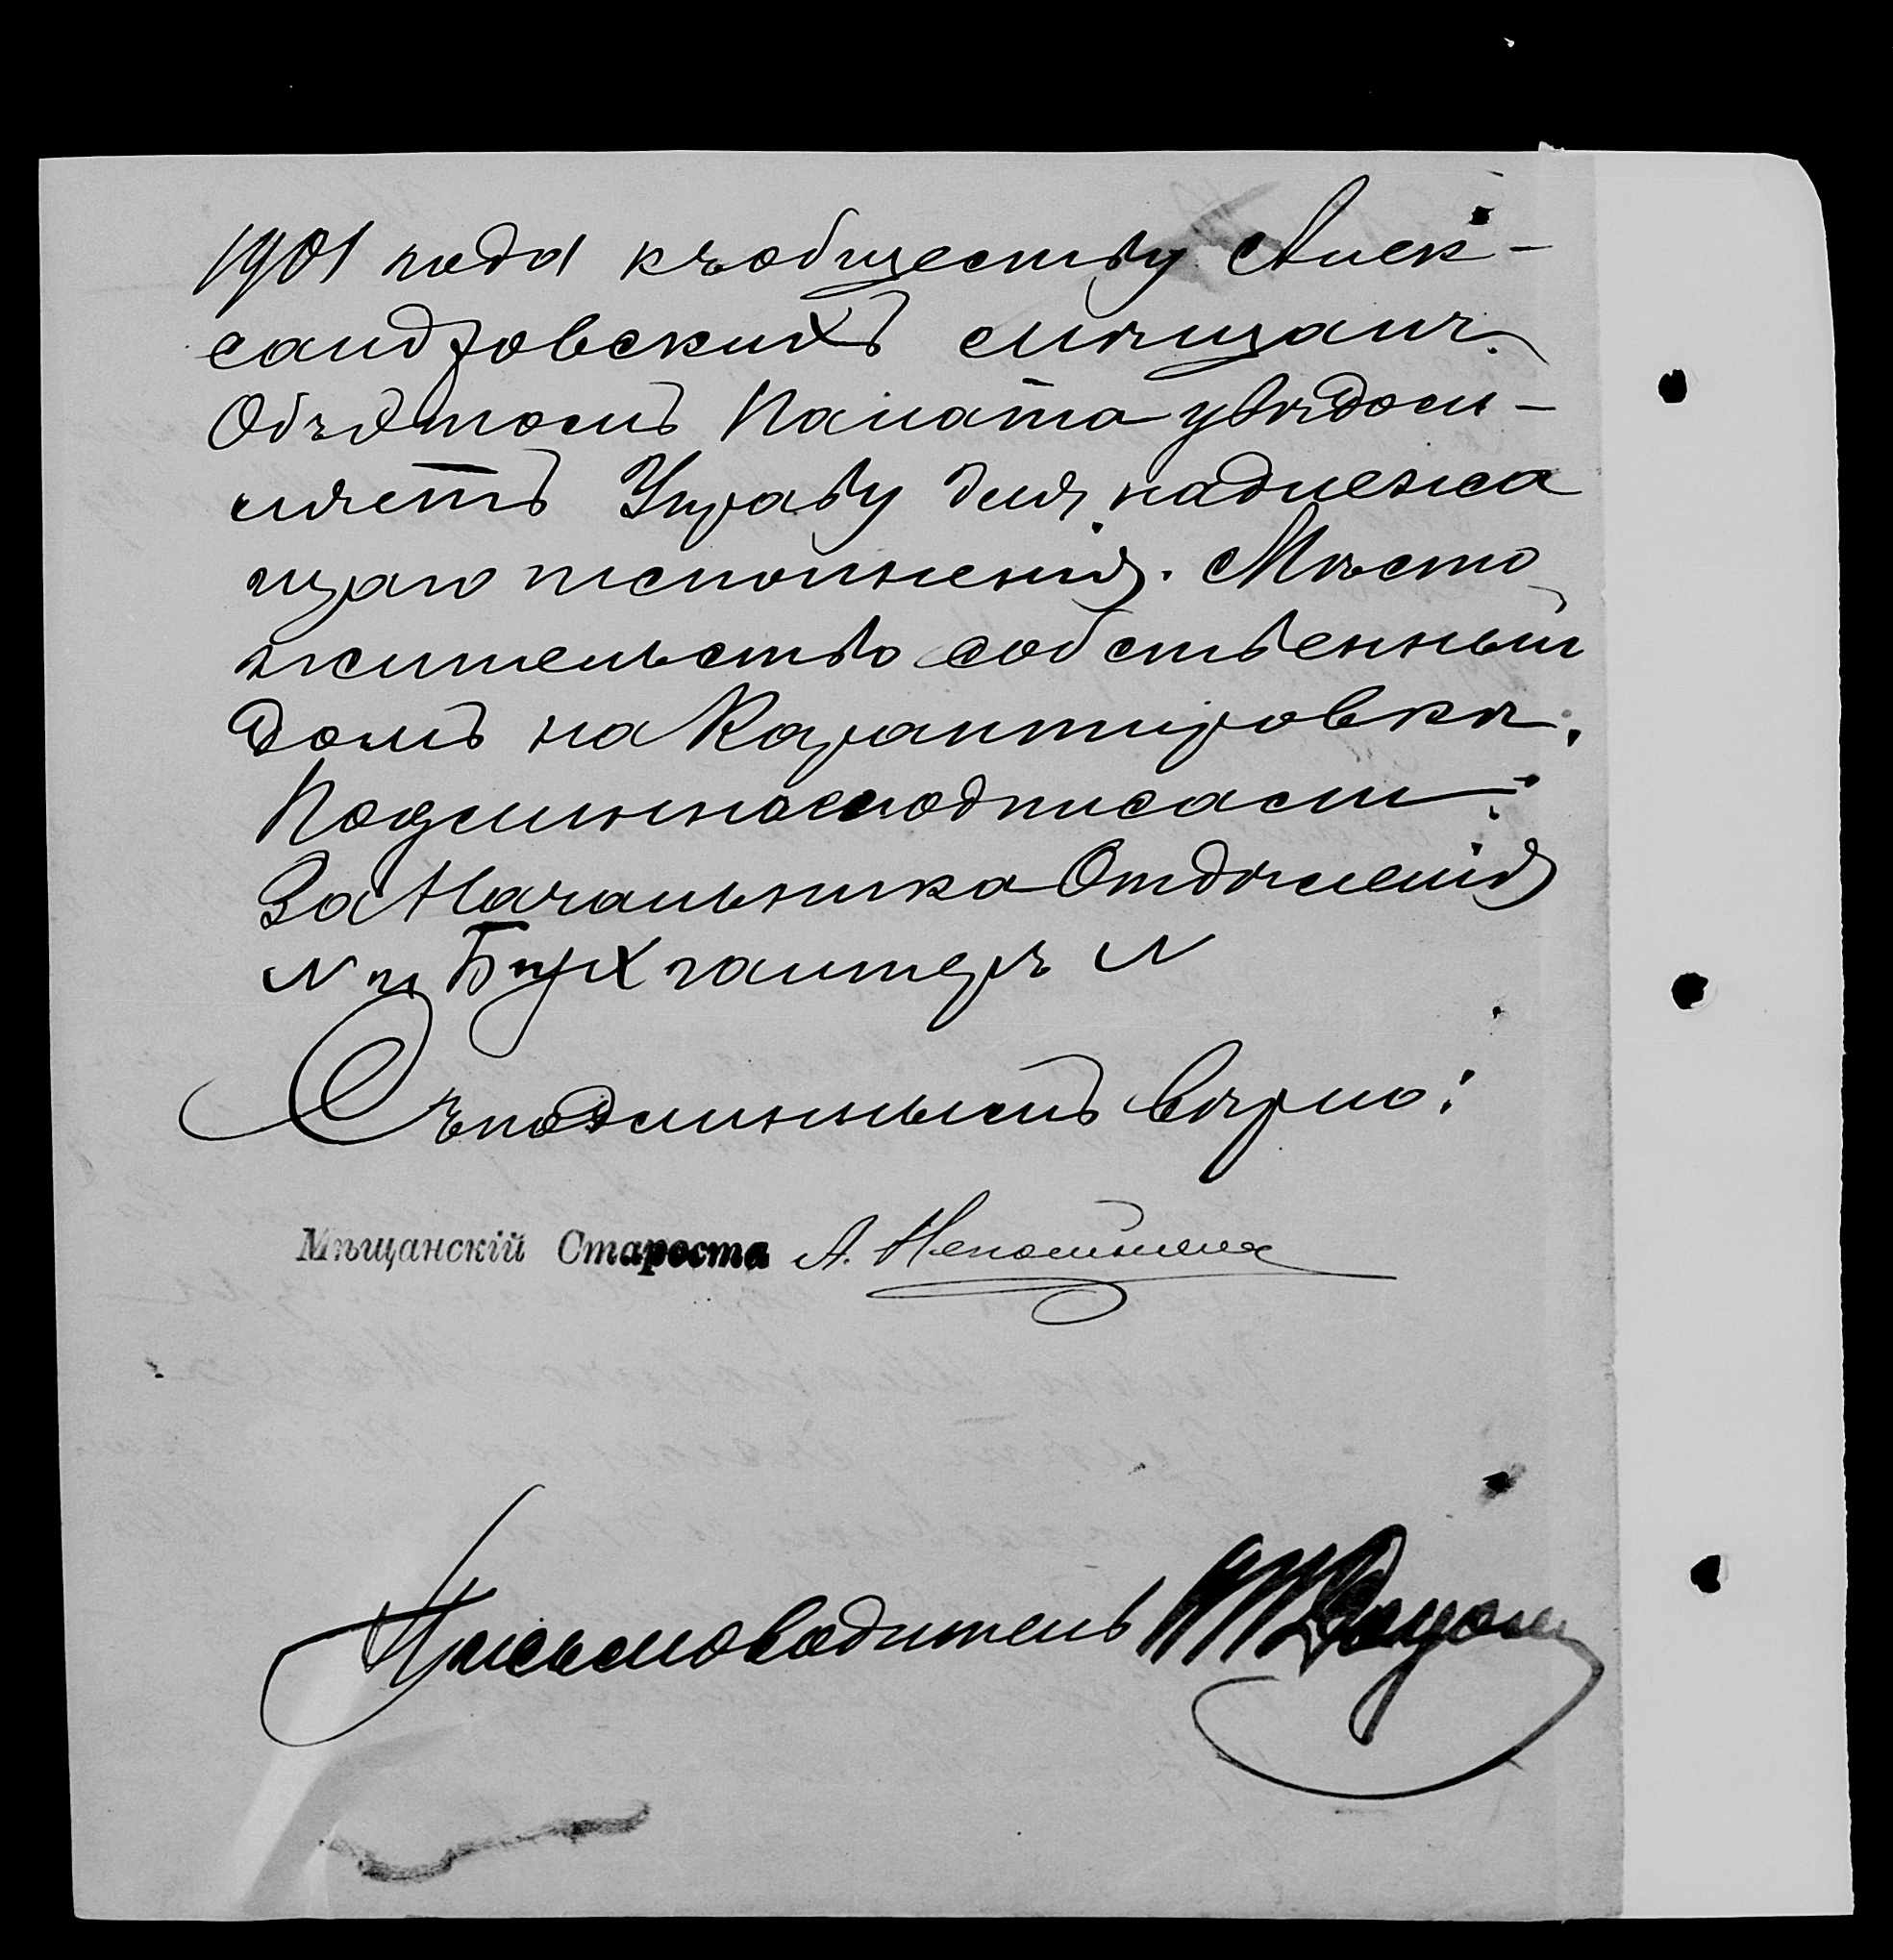 1901 года къ обществу Алек-
сандровскихъ мѣщанъ.
Объ этомъ Палата увѣдом-
ляетъ Управу для надлежа
щаго исполненія. Мѣсто
жительство собственный
домъ на Карантировкѣ.
Подлинное подписали:
За Начальника Отдѣленія
N и Бухгалтеръ N
Съ подлиннымъ вѣрно:
Мѣщанскій Староста А.
Письмоводитель